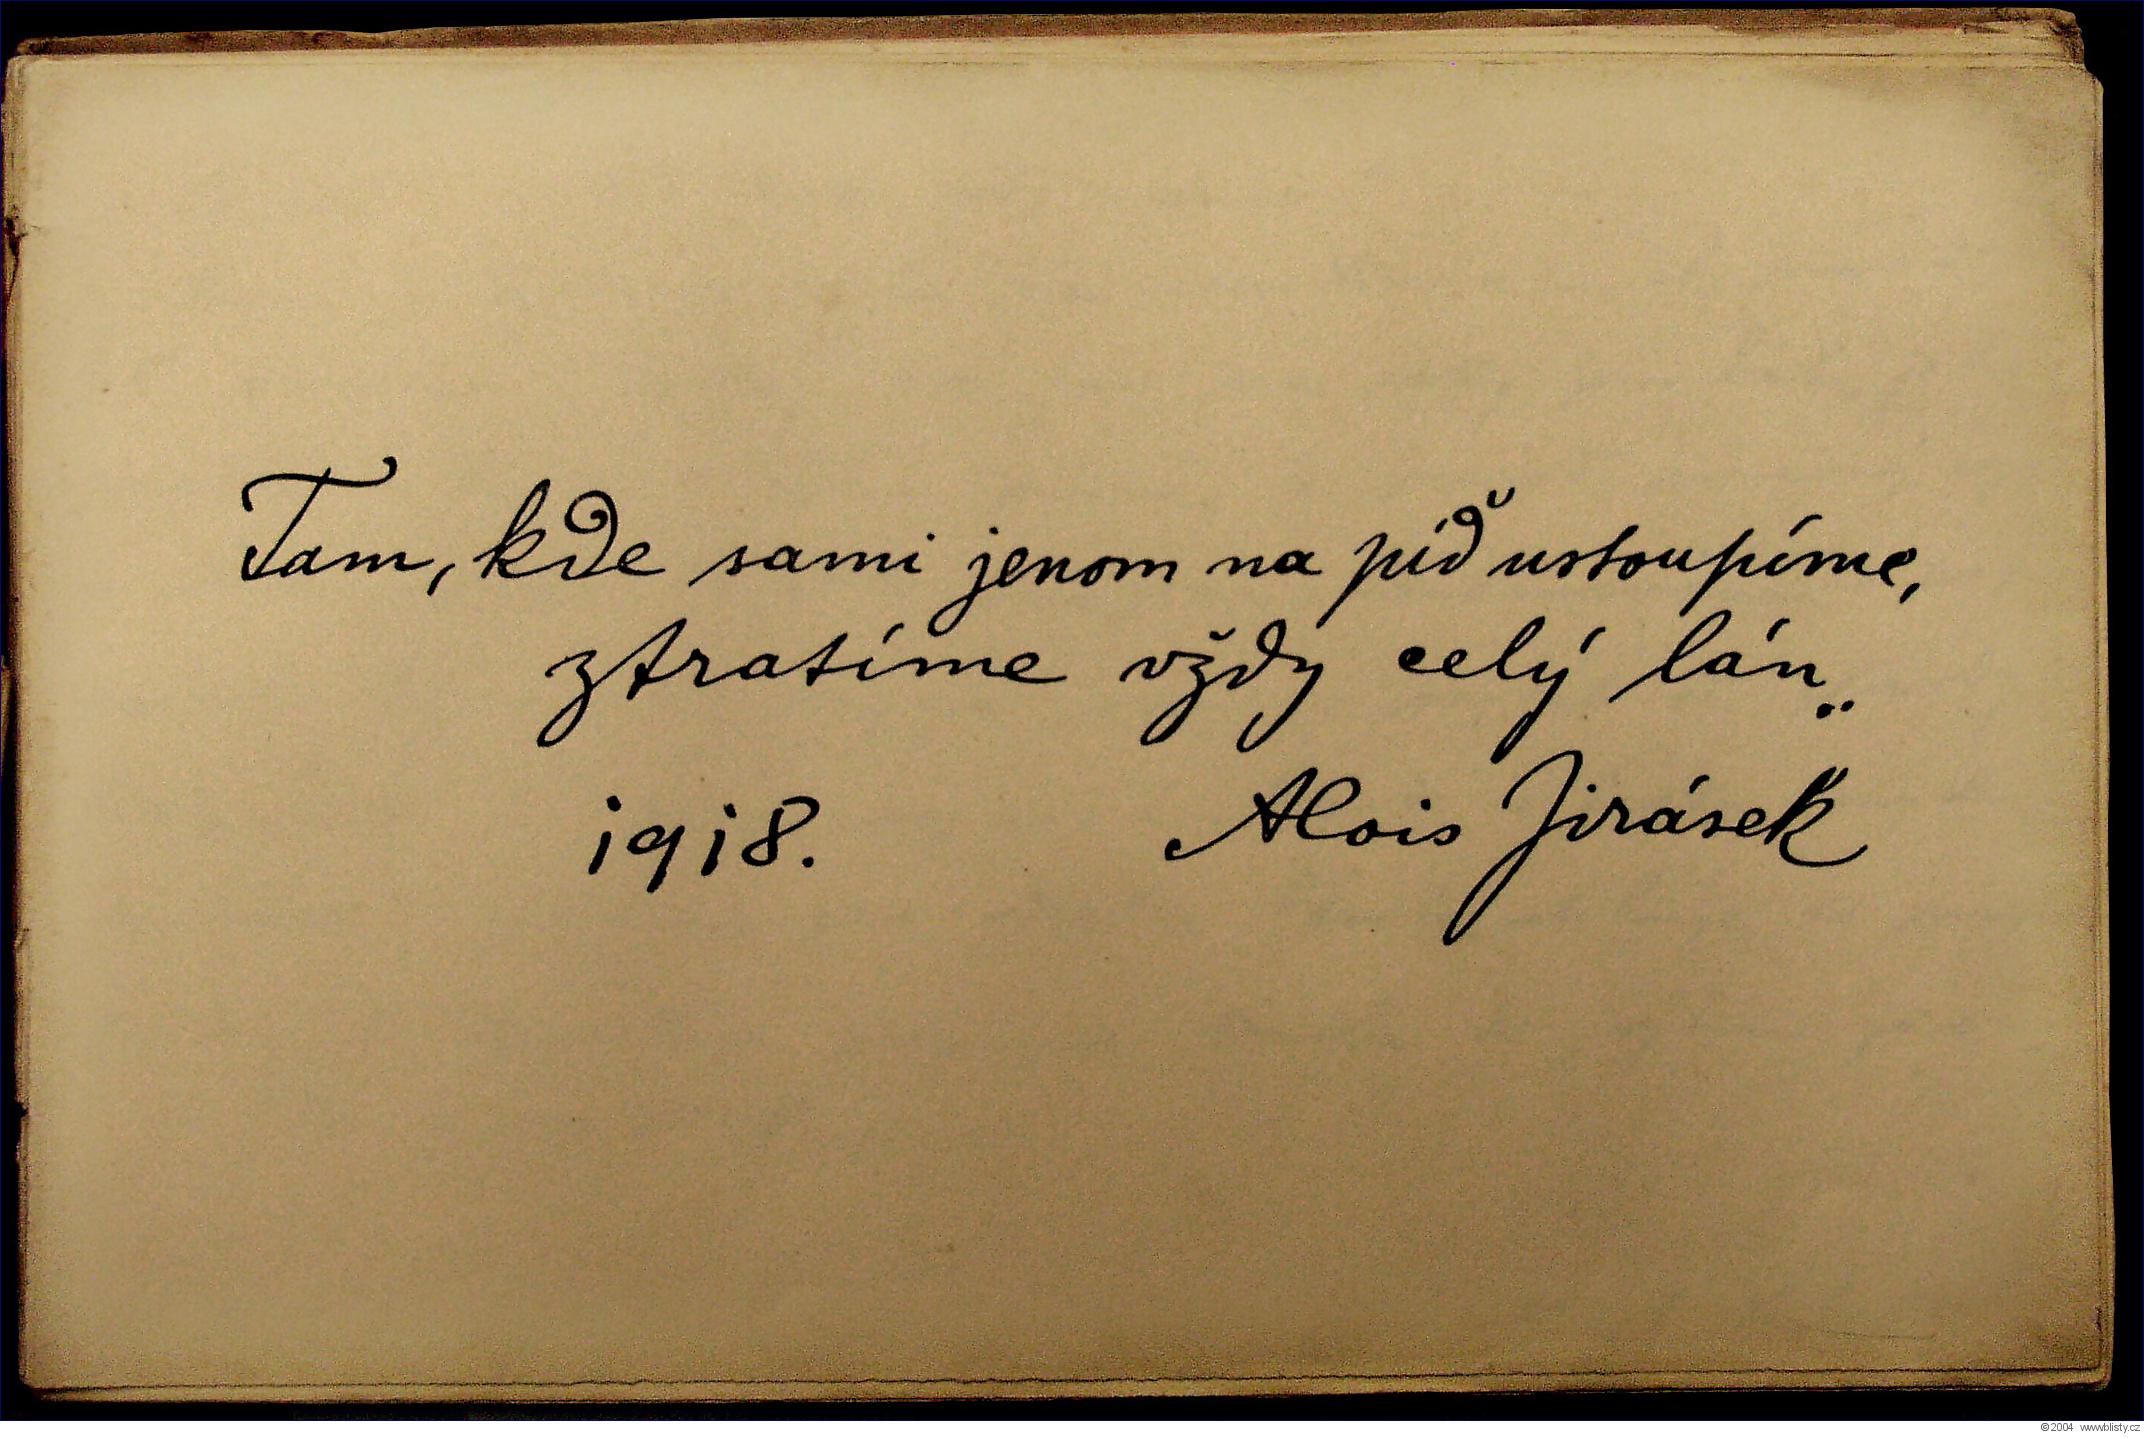 Tam, kde sami jenom na píď ustoupíme,
ztratíme vždy celý lán..
1918. Alois Jirásek
©2004 www.blisty.cz